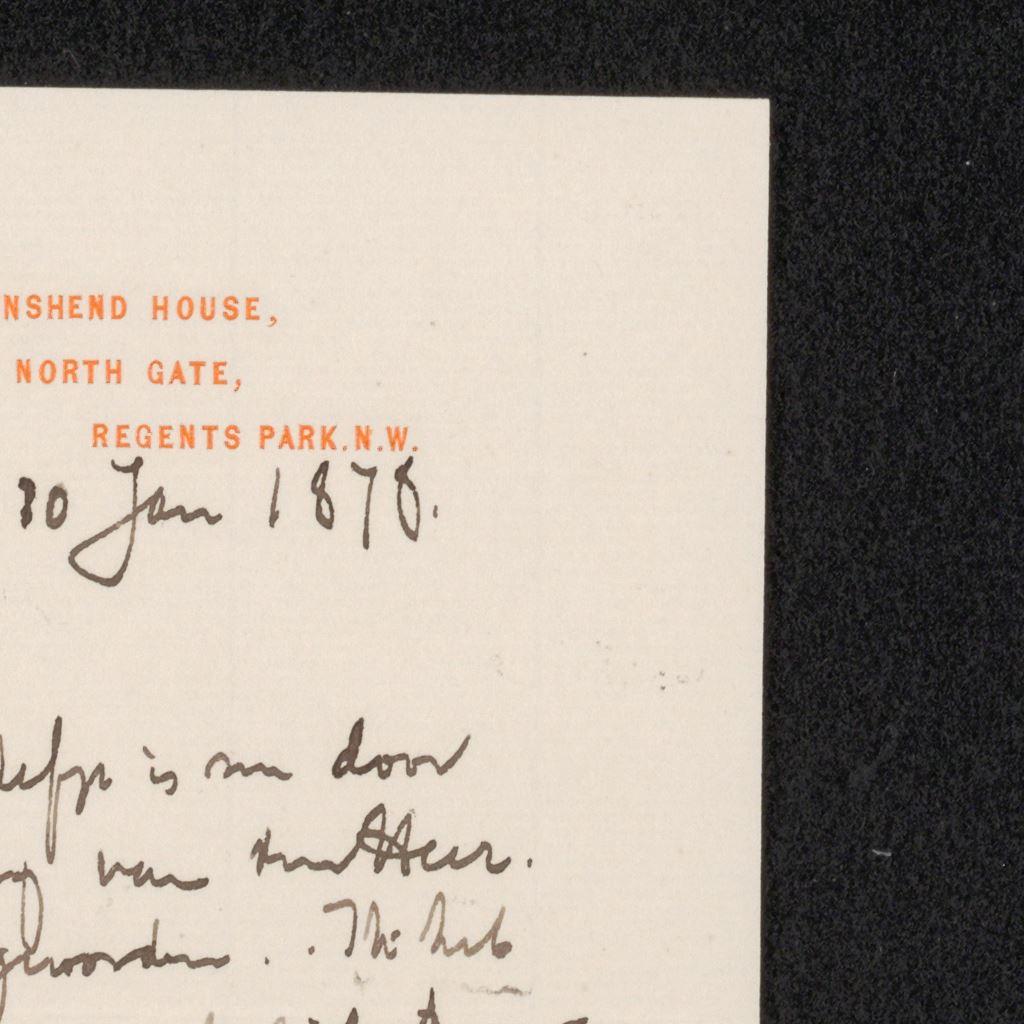 NSHEND HOUSE,
NORTH GATE,
REGENTS PARK.N.W.
30 Jan 1878.
is nu door
van Heer.
geworden. Ik heb